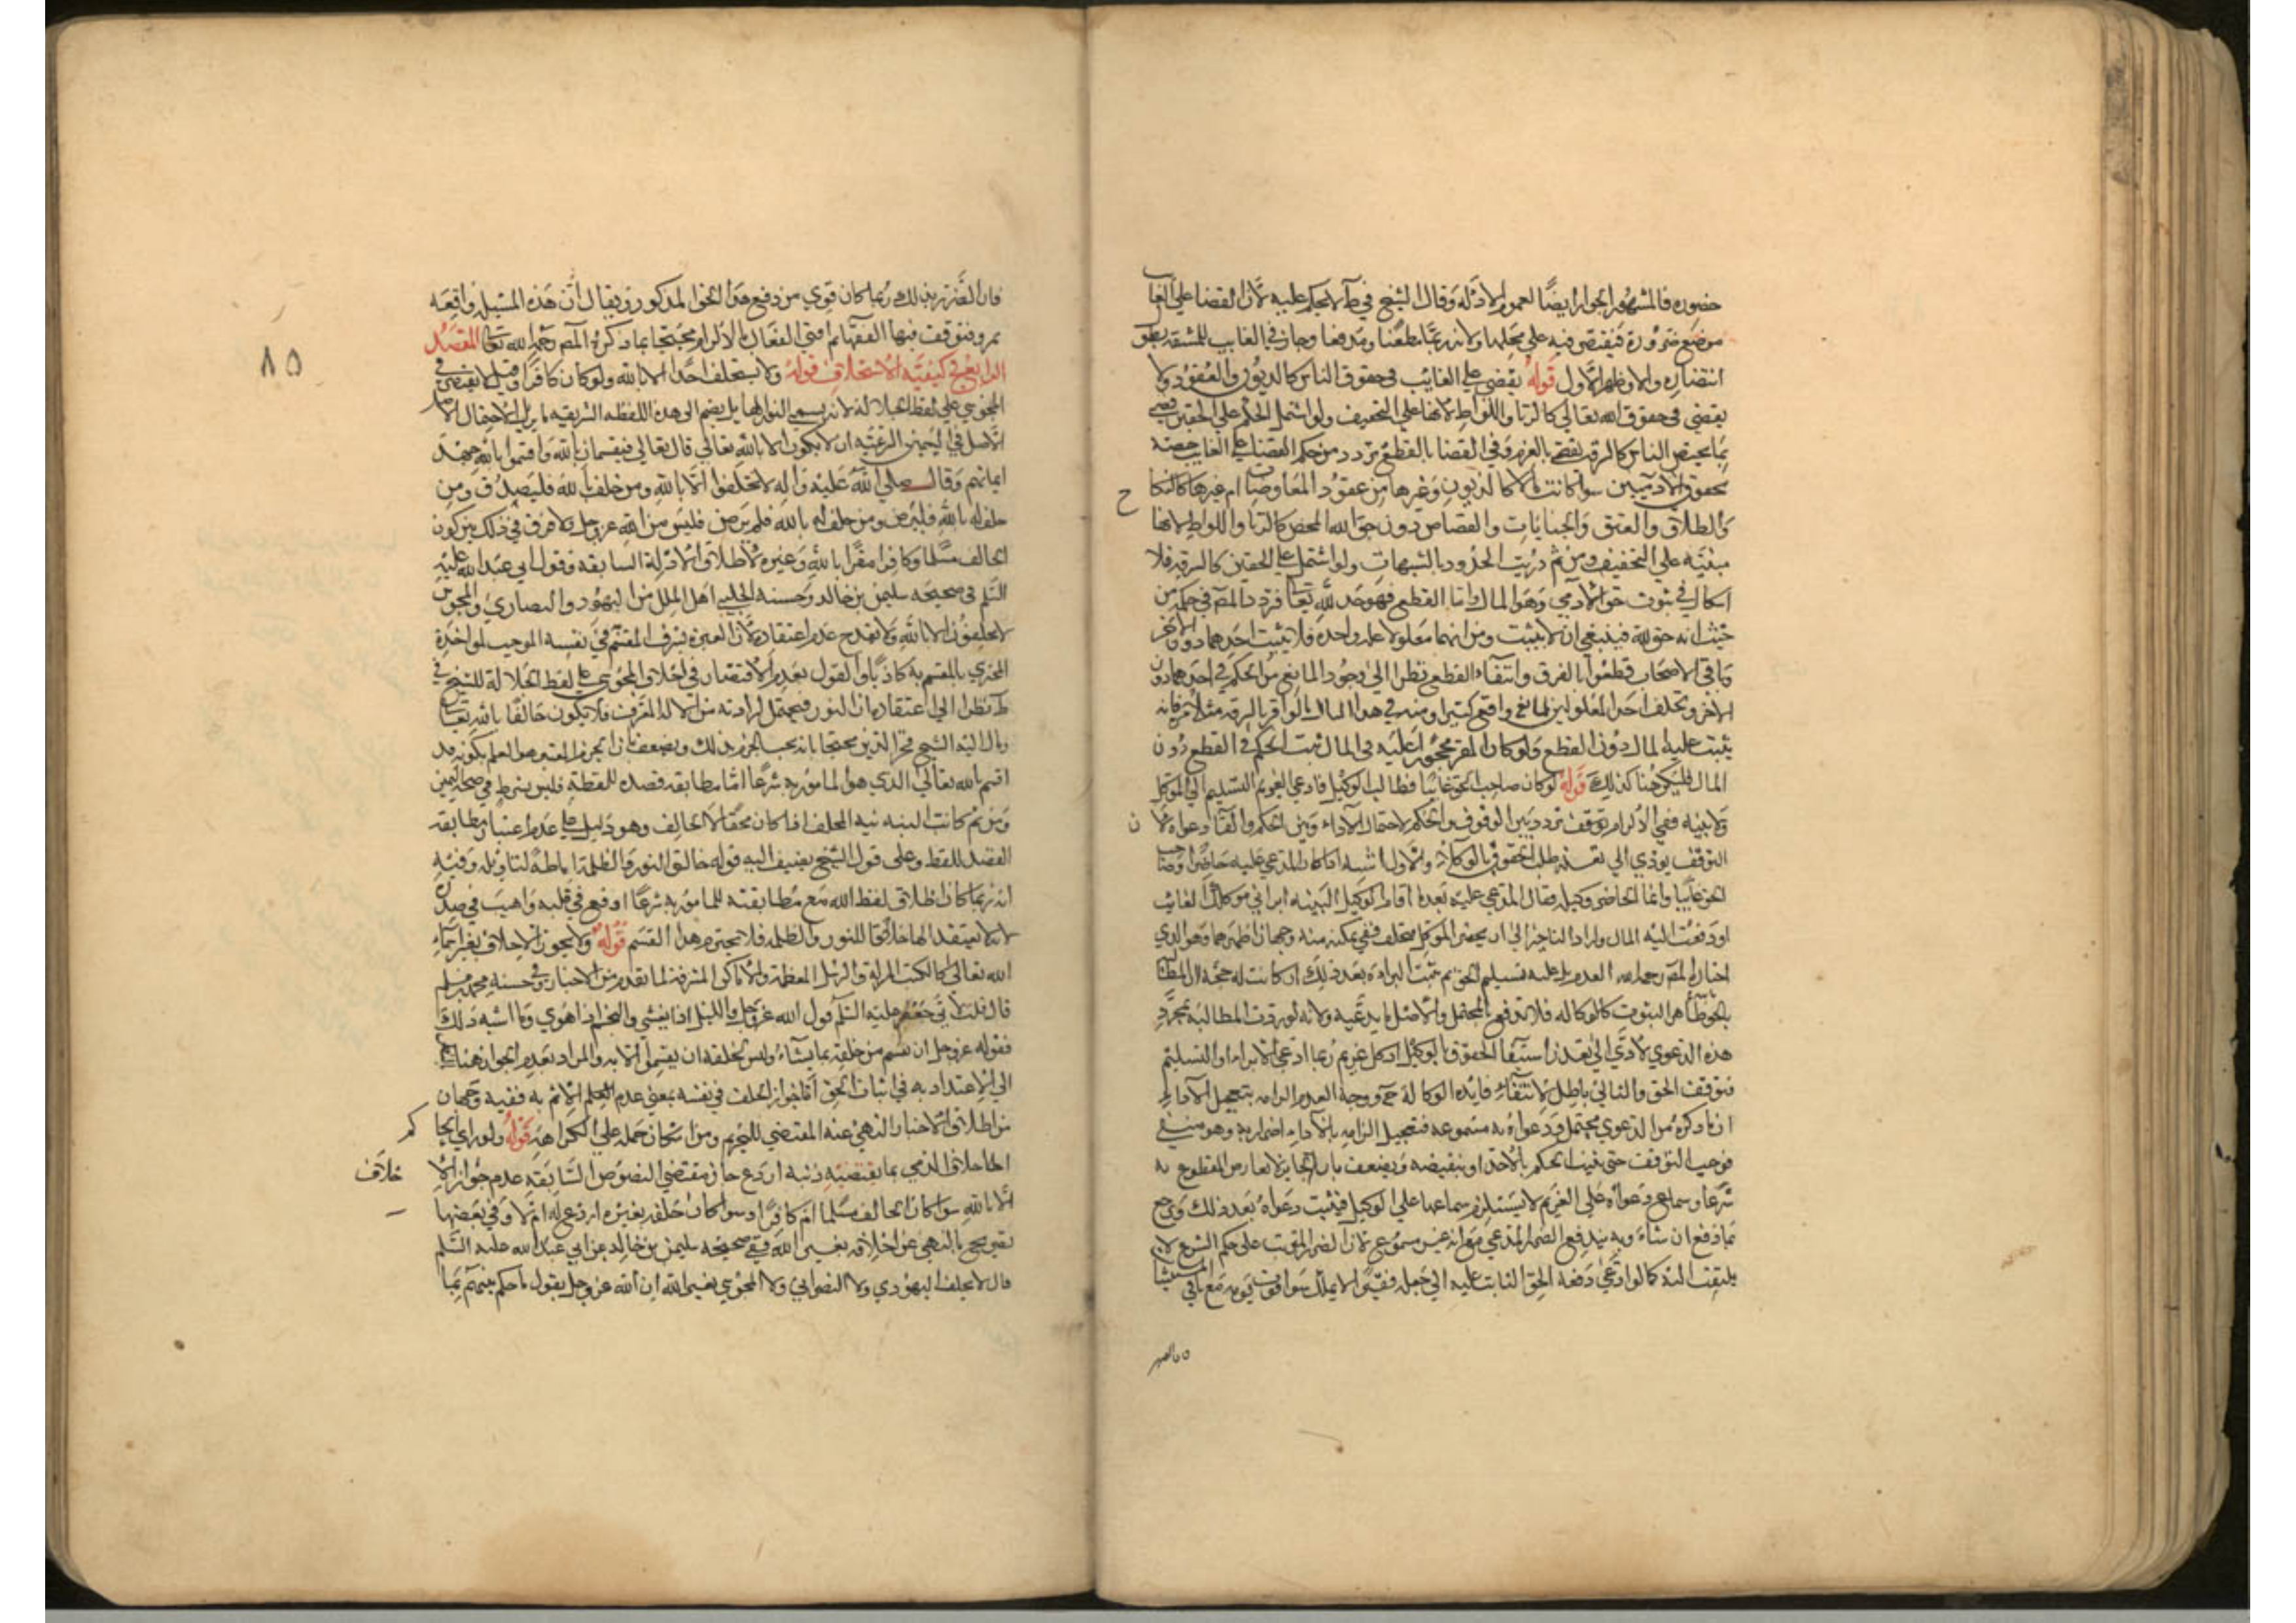 حضوره فالمشهور الجواز ايضًا لعموم الادلة وقال الشيخ في ط لا يحكم عليه لان القضا على الغايب
موضع ضرورة فيقتصر فيه على محلها ولانه ربما مطعنا ومدفعا وجاز في الغايب للمشقة بطول
انتضاره والاو ظهر الاول قوله يقضي على الغائب في حقوق الناس كالديون والعقود ولا
يقضي في حقوق الله تعالى كالزنا واللواط لانها على التخفيف ولو اشتمل الحكم على الحقين قضي
بما يختص الناس كالسرقة يقضي بالغرم وفي القضا بالقطع تردد من حكم القضا على الغايب
بحقوق الادميين سوا كانت مالا كالديون وغيرها من عقود المعاوضات ام غيرها كالنكاح
والطلاق والعتق والجنايات والقصاص دون حق الله المحض كالزنا واللواط لانها
مبنية على التخفيف ومن ثم دريت الحدود بالشبهات ولو اشتمل على الحقين كالسرقة فلا
اشكال في ثبوت حق الادمي وهو المال واما القطع فهو حد لله تعا فتردد المص في حكمه من
حيث انه حق لله فينبغي ان لا يثبت ومن انهما معلولا علة واحدة فلا يثبت احدهما دون الاخر
وباقي الاصحاب قطعوا بالفرق وانتفاء القطع نظرا الى وجود المانع من الحكم في احدهما دون
الاخر وتخلف احد المعلولين لمانع واقع كثيرا ومنه في هذا المثال ما لو اقر بالسرقة مثلا مرة فانه
يثبت عليه المال دون القطع ولو كان المقر محجورا عليه في المال ثبت الحكم في القطع دون
المال فليكن هنا كذلك قوله لو كان صاحب الحق غايبا فطالب الوكيل فادعى الغريم التسليم الى الموكل
ولا بينة ففي الالزام توقف تردد بين الوقوف في الحكم لاحتمال الاداء وبين الحكم والغا دعواه لان
التوقف يودي الى تعذر طلب الحقوق بالوكلاء والاول اشبه اذا كان المدعى عليه حاضرا وصاحب
الحق غايبا وانما الحاضر وكيله فقال المدعى عليه بعد ما اقام الوكيل البينة ابراني موكلك الغائب
او دفعت اليه المال واراد التاخير الى ان يحضر الموكل فيحلف ففي تمكينه منه وجهان اظهرهما وهو الذي
اختاره المص رحمه الله العدم بل عليه تسليم الحق ثم يثبت البراءة بعد ذلك ان كانت له حجة لان المطالب
بالحق ظاهر الثبوت كالوكالة فلا تدفع بالمحتمل والاصل عدم ما يدعيه ولانه لو وقفت المطالبة بمجرد
هذه الدعوى لادى الى تعذر استيفا الحقوق بالوكيل اذ كل غريم ربما ادعى الابراء او التسليم
فتوقف الحق والتالي باطل لانتفاء فايدة الوكالة ح ووجه العدم الزامه بتعجيل الاداء
ان ما ذكره من الدعوى محتمل ودعواه به مسموعة فتعجيل الزامه بالاداء اضرار به وهو منفي
فوجب التوقف حتى يتبين الحكم بالاخذ او بنقيضه ويضعف بان الجايز لا يعارض المقطوع به
شرعا وسماع دعواه على الغريم لا يستلزم سماعها على الوكيل فيثبت دعواه بعد ذلك ويرجع
بما دفع ان شاء وبه يندفع الضرر المدعى مع انه غير مسموع لان الضرر المترتب على حكم الشرع لا
يلتفت اليه كما لو ادعى دفعه الحق الثابت عليه الى جمله فقيرا لا يملك سوا قوت يومه مع باقي المستثنيات
فان الضرر بذلك ربما كان قوي من دفع هذا الحق المذكور ويقال ان هذه المسئلة واقعة
بمرو فتوقف فيها الفقهاء ثم افتى القفال بالالزام محتجا بما ذكره المص رحمه الله تعا المقصد
الرابع في كيفية الاستحلاف قوله ولا يستحلف احد الا بالله ولو كان كافرا وقيل لا يقتصر في
المجوسي على لفظ الجلالة لانه يسمي النور الها بل يضم الى هذه اللفظة الشريفة ما يزيل الاحتمال
الاصل في اليمين الشرعية ان لا يكون الا بالله تعالى قال تعالى فيقسمان بالله واقسموا بالله جهد
ايمانهم وقال صلى الله عليه واله لا تحلفوا الا بالله ومن حلف بالله فليصدق ومن
حلف له بالله فليرض ومن حلف له بالله فلم يرض فليس من الله عز وجل ولا فرق في ذلك بين كون
الحالف مسلما وكافرا مقرا بالله وغيره لاطلاق الادلة السابقة وقول ابي عبد الله عليه
السلم في صحيحة سليمن بن خالد وحسنة الحلبي اهل الملل من اليهود والنصارى والمجوس
لا يحلفون الا بالله ولا يقدح عدم اعتقاده لان العبرة بشرف المقسم في نفسه الموجب لمواخذة
المجتري بالمقسم به كاذبا والقول بعدم الاقتصار في احلاف المجوسي على لفظ الجلالة للشيخ في
ط نظرا الى اعتقاده ان النور فيحتمل ارادته من الاله المعرف فلا يكون حالفا بالله تعا
ومال اليه الشيخ فخر الدين محتجا بانه يجب الجزم بذلك ويضعف بان الجزم المعتبر هو العلم بكونه قد
اقسم بالله تعالى الذي هو المامور به شرعا اما مطابقة قصده للفظة فليس شرط في صحة اليمين
ومن ثم كانت النية نية المحلف اذا كان محقا لا الحالف وهو دليل على عدم اعتبار مطابقة
القصد للفظ وعلى قول الشيخ يضيف اليه قوله خالق النور والظلمة اماطة لتاويله وفيه
انه ربما كان اطلاق لفظ الله مع مطابقته للمامور به شرعا اوقع في قلبه واهيب في صدره
لانه لا يعتقد الها خالقا للنور والظلمة فلا يحترم هذا القسم قوله ولا يجوز الاحلاف بغير اسماء
الله تعالى كالكتب المنزلة والرسل المعظمة والاماكن المشرفة لما تقدم من الاخبار وفي حسنة محمد بن مسلم
قال قلت لابي جعفر عليه السلم قول الله عز وجل والليل اذا يغشى والنجم اذا هوى وما اشبه ذلك
فقوله عز وجل ان يقسم من خلقه بما يشاء وليس لخلقه ان يقسموا الا به والمراد بعدم الجواز هنا
الى الاعتداد به في اثبات الحق اما جواز الحلف في نفسه بمعنى عدم الاثم به ففيه وجهان
من اطلاق الاخبار النهي عنه المقتضي للتحريم ومن امكان حمله على الكراهة قوله ولو راى الحاكم
احلاف الذمي بما يقتضيه دينه اردع جاز مقتضى النصوص السابقة عدم جواز الاحلاف
الا بالله سوا كان الحالف مسلما ام كافرا وسوا كان حلفه بغيره اردع له ام لا وفي بعضها
تصريح بالنهي عن احلافه بغير الله ففي صحيحه سليمن بن خالد عن ابي عبد الله عليه السلم
قال لا يحلف اليهودي ولا النصراني ولا المجوسي بغير الله ان الله عز وجل يقول فاحكم بينهم بما
٨٥
ح
ن
خلاف